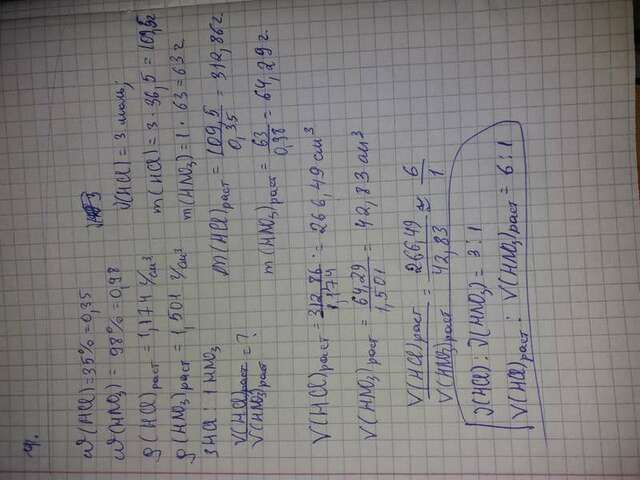 ω(HCl) = 35% = 0,35
ω(HNO₃) = 98% = 0,98
ρ(HCl)раст = 1,174 г/см³
ρ(HNO₃)раст = 1,501 г/см³
3 HCl : 1 HNO₃
V(HCl)раст / V(HNO₃)раст = ?
ν(HCl) = 3 моль;
m(HCl) = 3 · 36,5 = 109,5г
m(HNO₃) = 1 · 63 = 63 г.
m(HCl)раст = 109,5 / 0,35 = 312,86 г.
m(HNO₃)раст = 63 / 0,98 = 64,29 г.
V(HCl)раст = 312,86 / 1,174 = 266,49 см³
V(HNO₃)раст = 64,29 / 1,501 = 42,83 см³
V(HCl)раст / V(HNO₃)раст = 266,49 / 42,83 ≈ 6 / 1
ν(HCl) : ν(HNO₃) = 3 : 1
V(HCl)раст : V(HNO₃)раст = 6 : 1